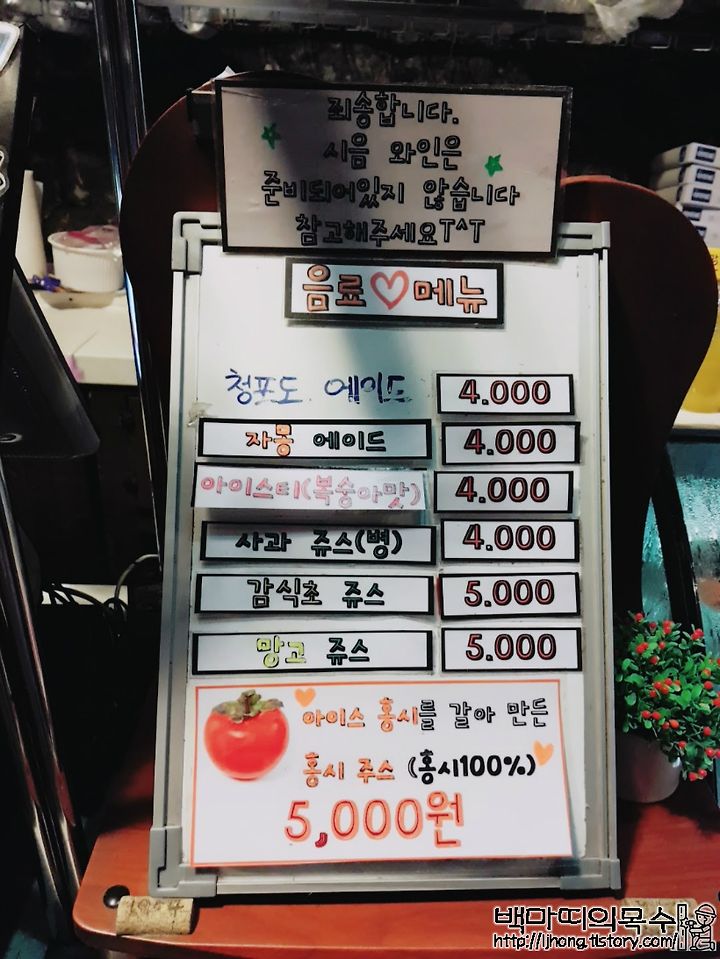 죄송합니다.
시음 와인은
준비되어있지 않습니다
참고해주세요T^T
음료♡메뉴
청포도 에이드 4.000
자몽 에이드 4.000
아이스티(복숭아맛) 4.000
사과 쥬스(병) 4.000
감식초 쥬스 5.000
망고 쥬스 5.000
아이스 홍시를 갈아 만든
홍시 주스 (홍시100%)
5,000원
백마띠의목수
http://ljhong.tistory.com/